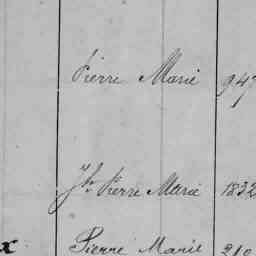 Pierre Marie 947
Jh Pierre Marie 1832
x Pierre Marie 210